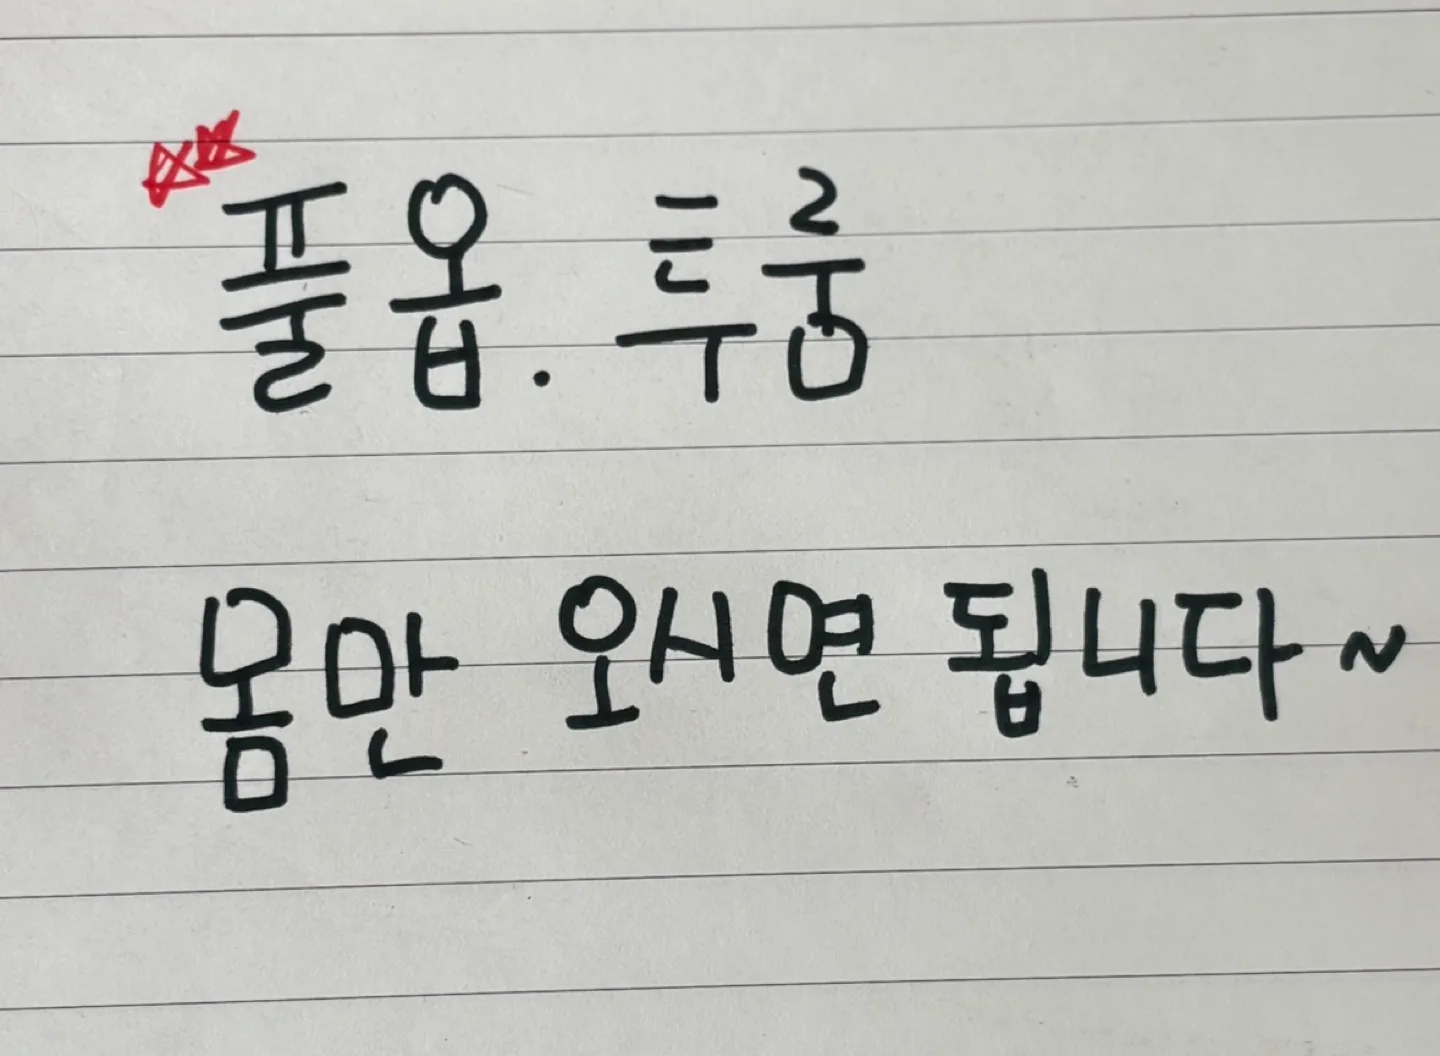 풀옵. 투룸
몸만 오시면 됩니다~